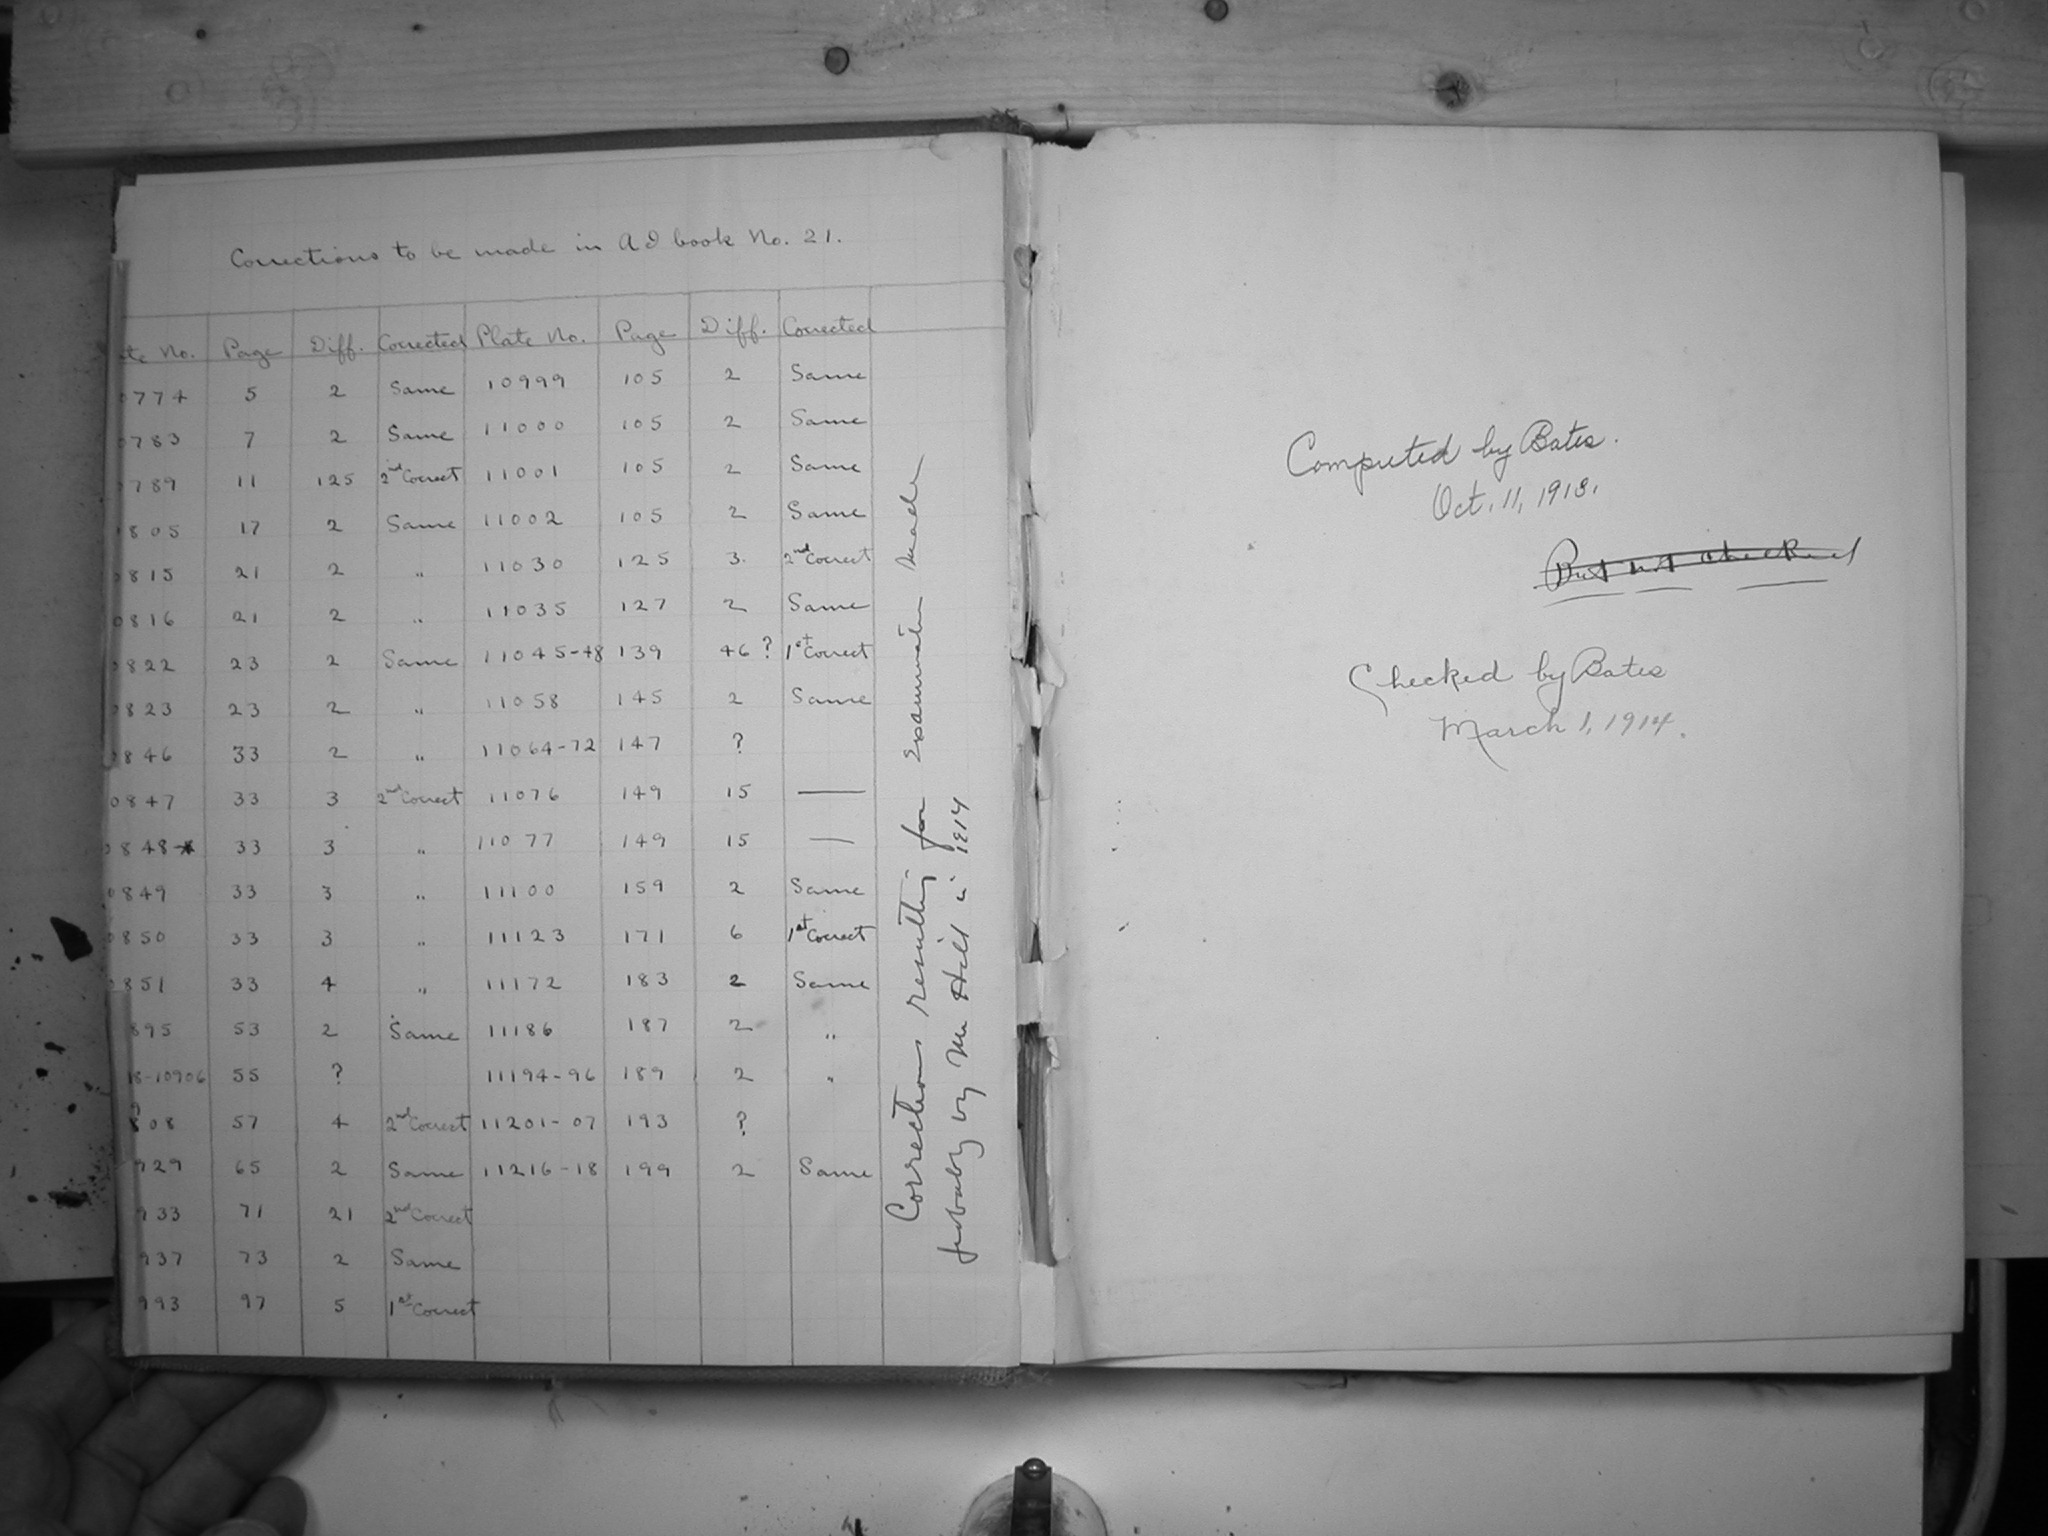 Corrections to be made in A I book No. 21.
te No. Page Diff. Corrected Plate No. Page Diff. Corrected
0774 5 2 Same 10999 105 2 Same
0783 7 2 Same 11000 105 2 Same
0789 11 125 2nd Correct 11001 105 2 Same
0805 17 2 Same 11002 105 2 Same
0815 21 2 " 11030 125 3. 2nd Correct
0816 21 2 " 11035 127 2 Same
0822 23 2 Same 11045-48 139 46 ? 1st Correct
0823 23 2 " 11058 145 2 Same
0846 33 2 " 11064-72 147 ?
0847 33 3 2nd Correct 11076 149 15 —
0848 33 3 " 11077 149 15 —
0849 33 3 " 11100 159 2 Same
0850 33 3 " 11123 171 6 1st Correct
0851 33 4 " 11172 183 2 Same
895 53 2 Same 11186 187 2 "
18-10906 55 ? 11194-96 189 2 "
908 57 4 2nd Correct 11201-07 193 ?
929 65 2 Same 11216-18 199 2 Same
933 71 21 2nd Correct
937 73 2 Same
993 97 5 1st Correct
Corrections resulting for Examination made
probably by Mr Hill in 1914
Computed by Bates.
Oct. 11, 1913.
But not checked
Checked by Bates
March 1, 1914.